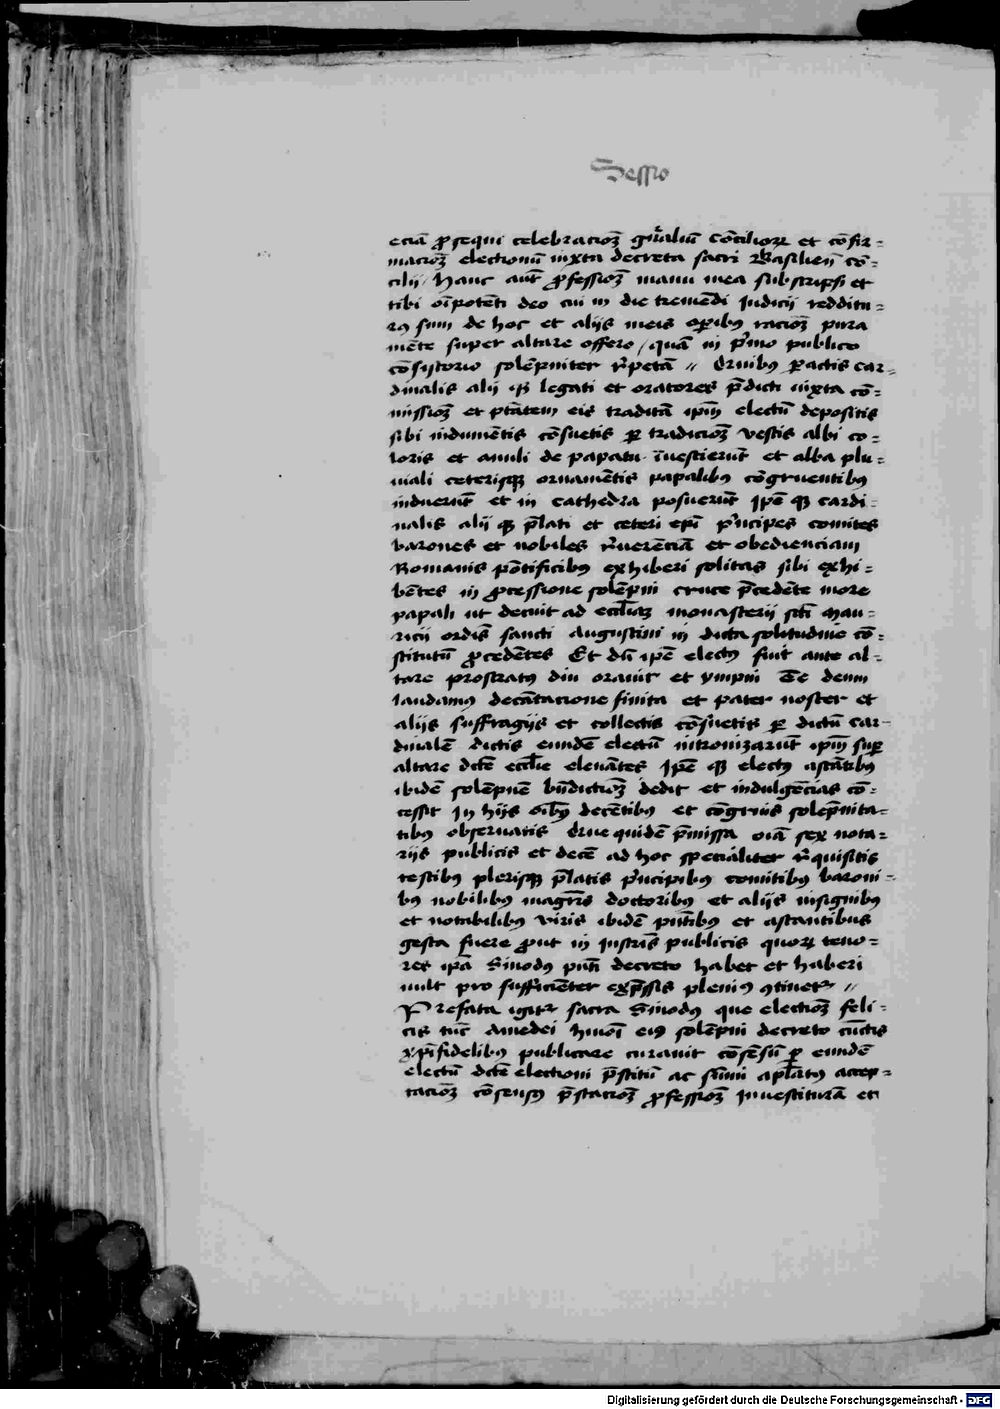 Sessio
eciā ꝓsequi celebracioꝫ gn̄aliū cōcilioꝝ et cōfir=
macioꝫ electionū iuxta decreta sacri Basilieñ cō=
cilij / hanc aut̄ ꝓfessioꝫ manu mea subscripsi et
tibi oīpotēti deo cui in die tremēdi Iudicij redditu=
rꝰ sum de hoc et alijs meis oꝑibꝰ racioꝫ pura
mēte super altare offero / quā in pͥmo publico
cōsistorio solēpniter r̄petā // Qruibꝰ ꝑactis car=
dinalis alij qꝫ legati et oratores p̄dicti iuxta cō=
missioꝫ et ptātem eis traditā ipm̄ electū depositis
sibi indumētis cōsuetis ꝑ tradicioꝫ vestis albi co=
loris et anuli de papatu īuestierūt et alba plu=
uiali ceterisqꝫ ornamētis papalibꝰ cōgruentibꝰ
induerūt et in cathedra posuerūt Ipē qꝫ cardi=
nalis alij qꝫ p̄lati et ceteri epī pͥncipes comites
barones et nobiles r̄uerēciā et obedienciam
Romanis pōtificibꝰ exhiberi solitas sibi exhi=
bētes in ꝓcessione solēpni cruce p̄cedēte more
papali ut decuit ad eccliaꝫ monasterij sct̄i Mau=
ricij ordīs sancti Augustini in dicta solitudine cō=
stitutū ꝓcedētes Et dū ipē electꝰ fuit ante al=
tare prostratꝰ diu orauit et ympni Te deum
laudamꝰ decātacione finita et pater noster et
alijs suffragijs et collectis cōsuetis ꝑ dictū car=
dinalē dictis eundē electū intronizarūt ipm̄ suꝑ
altare dcē eccl̄ie eleuātes Ipē qꝫ electꝰ astātibꝰ
ibidē solēpnē bn̄dictioꝫ dedit et indulgēcias cō=
cessit In hijs oībꝰ decētibꝰ et cōgruis solēpnita=
tibꝰ obseruatis Que quidē p̄missa corā sex nota=
rijs publicis et decē ad hoc specialiter r̄quisitis
testibꝰ plerisqꝫ p̄latis pͥncipibꝰ comitibꝰ baroni=
bꝰ nobilibꝰ magrīs doctoribꝰ et alijs insignibꝰ
et notabilibꝰ viris ibidē pn̄tibꝰ et astantibus
gesta fuere ꝓut in Instrīs publicis quoꝝ teno=
res ipā Sinodꝰ pn̄ti decreto habet et haberi
vult pro sufficiēter exp̄ssis pleniꝰ ꝯtinetᷣ //
Prefata igitᷣ sacra Sinodꝰ que electioꝫ feli=
cis tūc Amedei huōī eiꝰ solēpni decreto cūctis
xp̄ifidelibꝰ publicare curauit cōsēsū ꝑ eundē
electū dcē electioni p̄stitū ac sūmi apl̄atꝰ accep=
tacioꝫ cōsensꝰ p̄stacioꝫ ꝓfessioꝫ Inuestiturā et
Digitalisierung gefördert durch die Deutsche Forschungsgemeinschaft - DFG